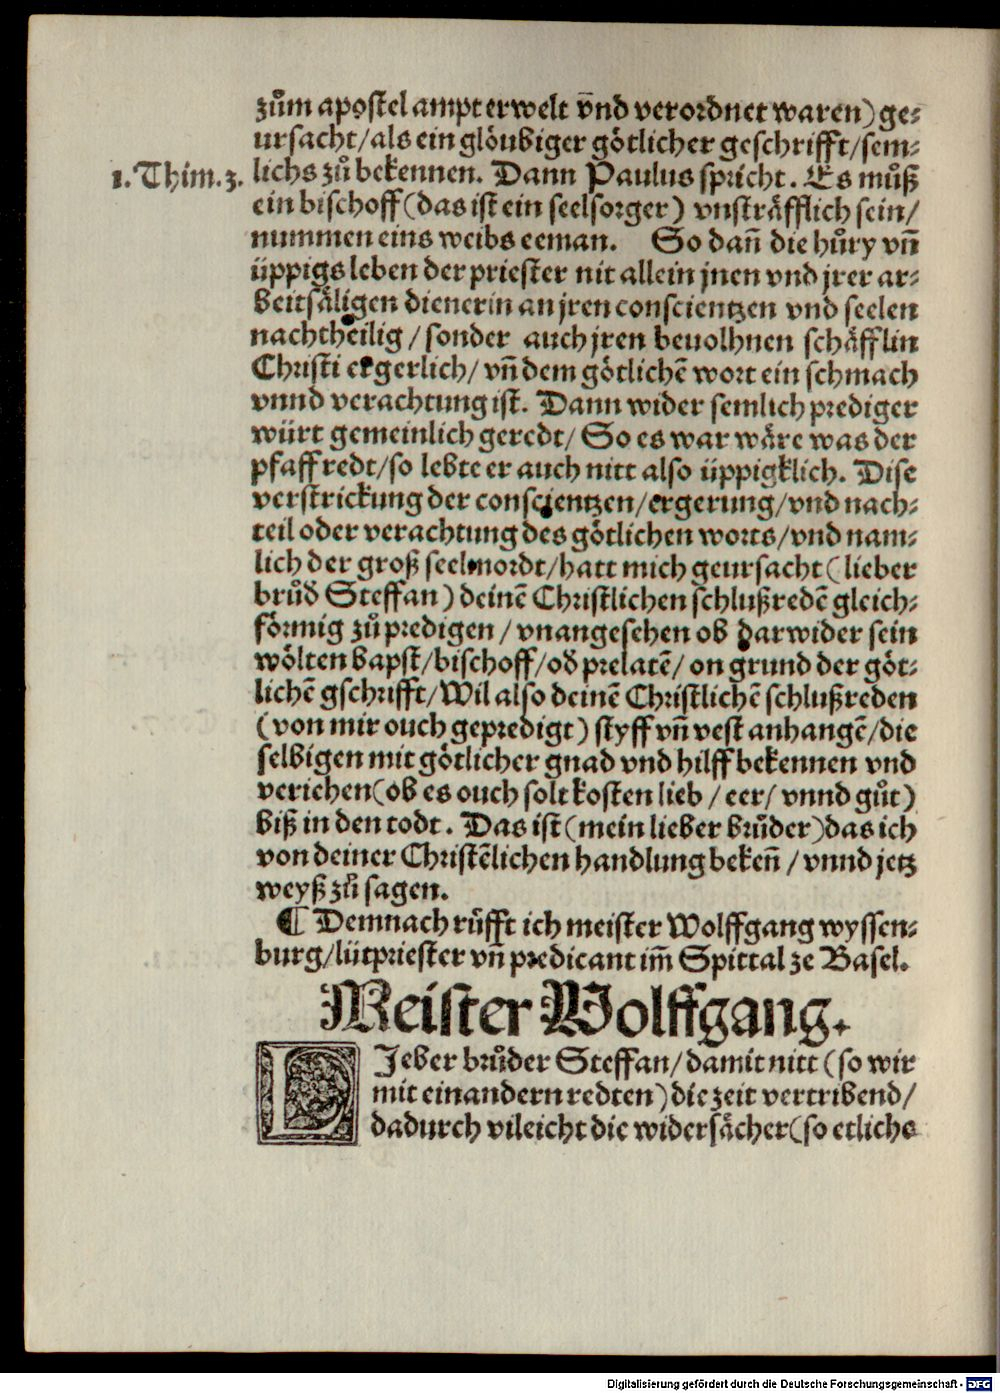 zům apostel ampt erwelt vnd verordnet waren) ge⸗
ursacht/als ein glöubiger götlicher geschrifft/sem⸗
1. Thim. 3. lichs zů bekennen. Dann Paulus spricht. Es můß
ein bischoff (das ist ein seelsorger) vnsträfflich sein/
nummen eins weibs eeman. So dañ die hůry vñ
üppigs leben der priester nit allein jnen vnd jrer ar⸗
beitsäligen dienerin an jren conscientzen vnd seelen
nachtheilig / sonder auch jren beuolhnen schäfflin
Christi ergerlich/ vñ dem götlichē wort ein schmach
vnnd verachtung ist. Dann wider semlich prediger
würt gemeinlich geredt/ So es war wäre was der
pfaff redt/so lebte er auch nitt also üppigklich. Dise
verstrickung der conscientzen/ergerung/vnd nach⸗
teil oder verachtung des götlichen worts/vnd nam⸗
lich der groß seelmordt/hatt mich geursacht (lieber
brůd Steffan) deinē Christlichen schlußredē gleich⸗
förmig zů predigen / vnangesehen ob darwider sein
wölten bapst/bischoff/od prelatē/ on grund der göt⸗
lichē gschrifft/Wil also deinē Christlichē schlußreden
(von mir ouch gepredigt) styff vñ vest anhangē/die
selbigen mit götlicher gnad vnd hilff bekennen vnd
veriehen(ob es ouch solt kosten lieb / eer/ vnnd gůt)
biß in den todt. Das ist (mein lieber brůder)das ich
von deiner Christēlichen handlung bekeñ / vnnd jetz
weyß zů sagen.
¶ Demnach rüfft ich meister Wolffgang wyssen⸗
burg/lütpriester vñ predicant im̄ Spittal ze Basel.
Meister Wolffgang.
LIeber brůder Steffan/damit nitt (so wir
mit einandern redten) die zeit vertribend/
dadurch vileicht die widersächer(so etlichs
Digitalisierung gefördert durch die Deutsche Forschungsgemeinschaft - DFG